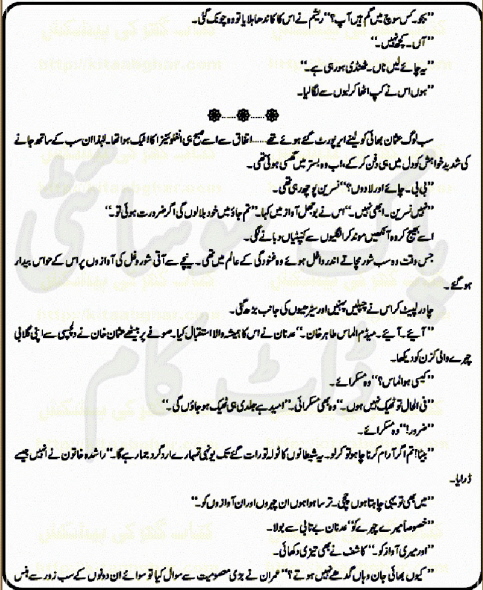 "بجو۔ کس سوچ میں گم ہیں آپ؟" ریشم نے اس کا کاندھا ہلایا تو وہ چونک گئی۔
"آں۔ کچھ نہیں۔"
"یہ چائے لیں ناں۔ ٹھنڈی ہو رہی ہے۔"
"ہوں اس نے کپ اٹھا کر لبوں سے لگا لیا۔
سب لوگ عثمان بھائی کو لینے ائیر پورٹ گئے ہوئے تھے...... اتفاق سے اسے صبح ہی انفلوئنزا کا اٹیک ہوا تھا۔ لہٰذا ان سب کے ساتھ جانے
کی شدید خواہش کو دل میں ہی دفن کر کے، اب وہ بستر میں گھسی ہوئی تھی۔
"بی بی۔ چائے اور لا دوں؟" نسرین پوچھ رہی تھی۔
"نہیں نسرین۔ ابھی نہیں۔" اس نے بوجھل آواز میں کہا۔ "تم جاؤ میں خود بلا لوں گی اگر ضرورت ہوئی تو۔"
اسے بھیج کر وہ آنکھیں موند کر انگلیوں سے کنپٹیاں دبانے لگی۔
جس وقت وہ سب شور مچاتے اندر داخل ہوئے وہ غنودگی کے عالم میں تھی۔ نیچے سے آتی شور و غل کی آوازوں پر اس کے حواس بیدار
ہو گئے۔
چادر لپیٹ کر اس نے چپلیں پہنیں اور سیڑھیوں کی جانب بڑھ گئی۔
"آئیے۔ آئیے۔ میڈم الماس طاہر خان۔" عدنان نے اس کا ہمیشہ والا استقبال کیا۔ صوفے پر بیٹھے عثمان خان نے دلچسپی سے اپنی گلابی
چہرے والی کزن کو دیکھا۔
"کیسی ہو الماس؟" وہ مسکرائے۔
"فی الحال تو ٹھیک نہیں ہوں۔" وہ بھی مسکرائی۔ "امید ہے جلدی ہی ٹھیک ہو جاؤں گی۔"
"ضرور!" وہ مسکرائے۔
"بیٹا! تم اگر آرام کرنا چاہو تو کر لو۔ یہ شیطانوں کا ٹولہ تو رات گئے تک یونہی تمہارے ارد گرد جما رہے گا۔" راشدہ خاتون نے انہیں جیسے
ڈرایا۔
"میں بھی تو یہی چاہتا ہوں چچی۔ ترسا ہوا ہوں ان چہروں اور ان آوازوں کو۔"
"خصوصاً میرے چہرے کو" عدنان بے تابی سے بولا۔
"اور میری آواز کو۔" کاشف نے بھی تیزی دکھائی۔
"کیوں بھائی جان وہاں گدھے نہیں ہوتے؟" عمران نے بڑی معصومیت سے سوال کیا تو سوائے ان دونوں کے سب زور سے ہنس
پاک سوسائٹی
ڈاٹ کام